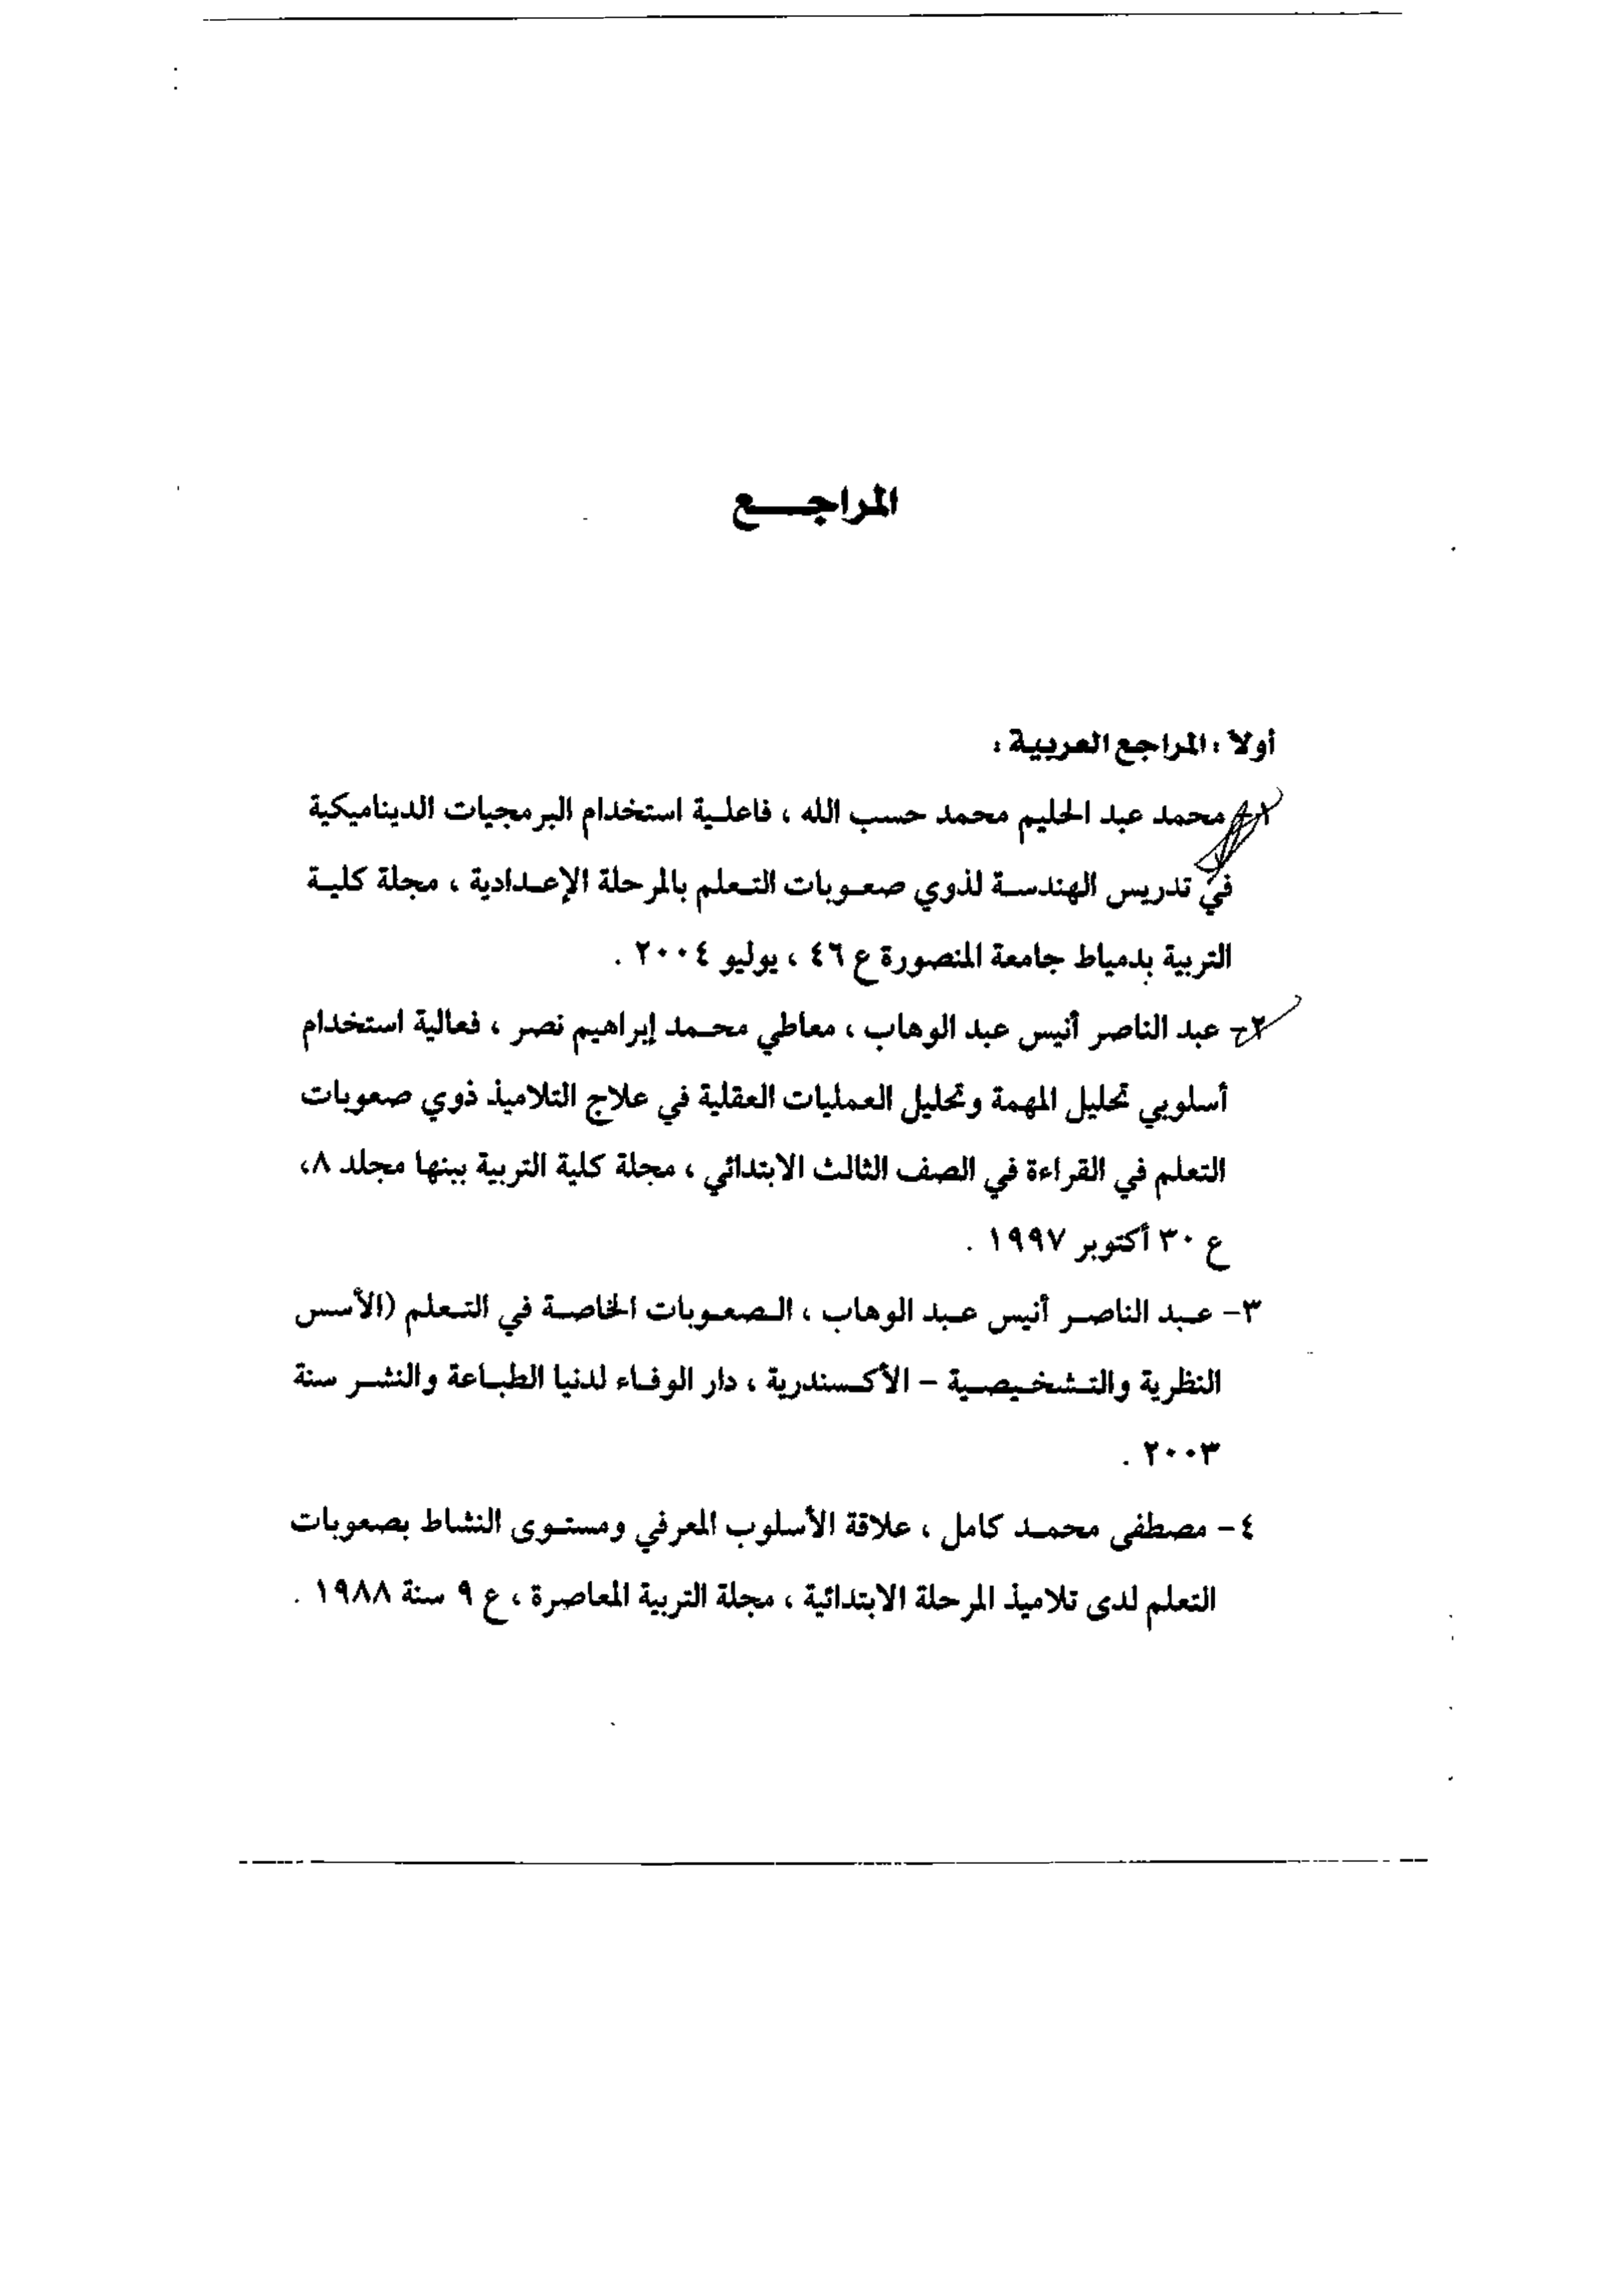 المراجـــع
أولاً : المراجع العربية :
١- محمد عبد الحليم محمد حسب الله ، فاعلية استخدام البرمجيات الديناميكية
في تدريس الهندسة لذوي صعوبات التعلم بالمرحلة الإعدادية ، مجلة كلية
التربية بدمياط جامعة المنصورة ع ٤٦ ، يوليو ٢٠٠٤ .
٢- عبد الناصر أنيس عبد الوهاب ، معاطي محمد إبراهيم نصر ، فعالية استخدام
أسلوبي تحليل المهمة وتحليل العمليات العقلية في علاج التلاميذ ذوي صعوبات
التعلم في القراءة في الصف الثالث الابتدائي ، مجلة كلية التربية ببنها مجلد ٨،
ع ٣٠ أكتوبر ١٩٩٧ .
٣- عبد الناصر أنيس عبد الوهاب ، الصعوبات الخاصة في التعلم (الأسس
النظرية والتشخيصية – الأكسندرية ، دار الوفاء لدنيا الطباعة والنشر سنة
٢٠٠٣ .
٤- مصطفى محمد كامل ، علاقة الأسلوب المعرفي ومستوى النشاط بصعوبات
التعلم لدى تلاميذ المرحلة الابتدائية ، مجلة التربية المعاصرة ، ع ٩ سنة ١٩٨٨ .